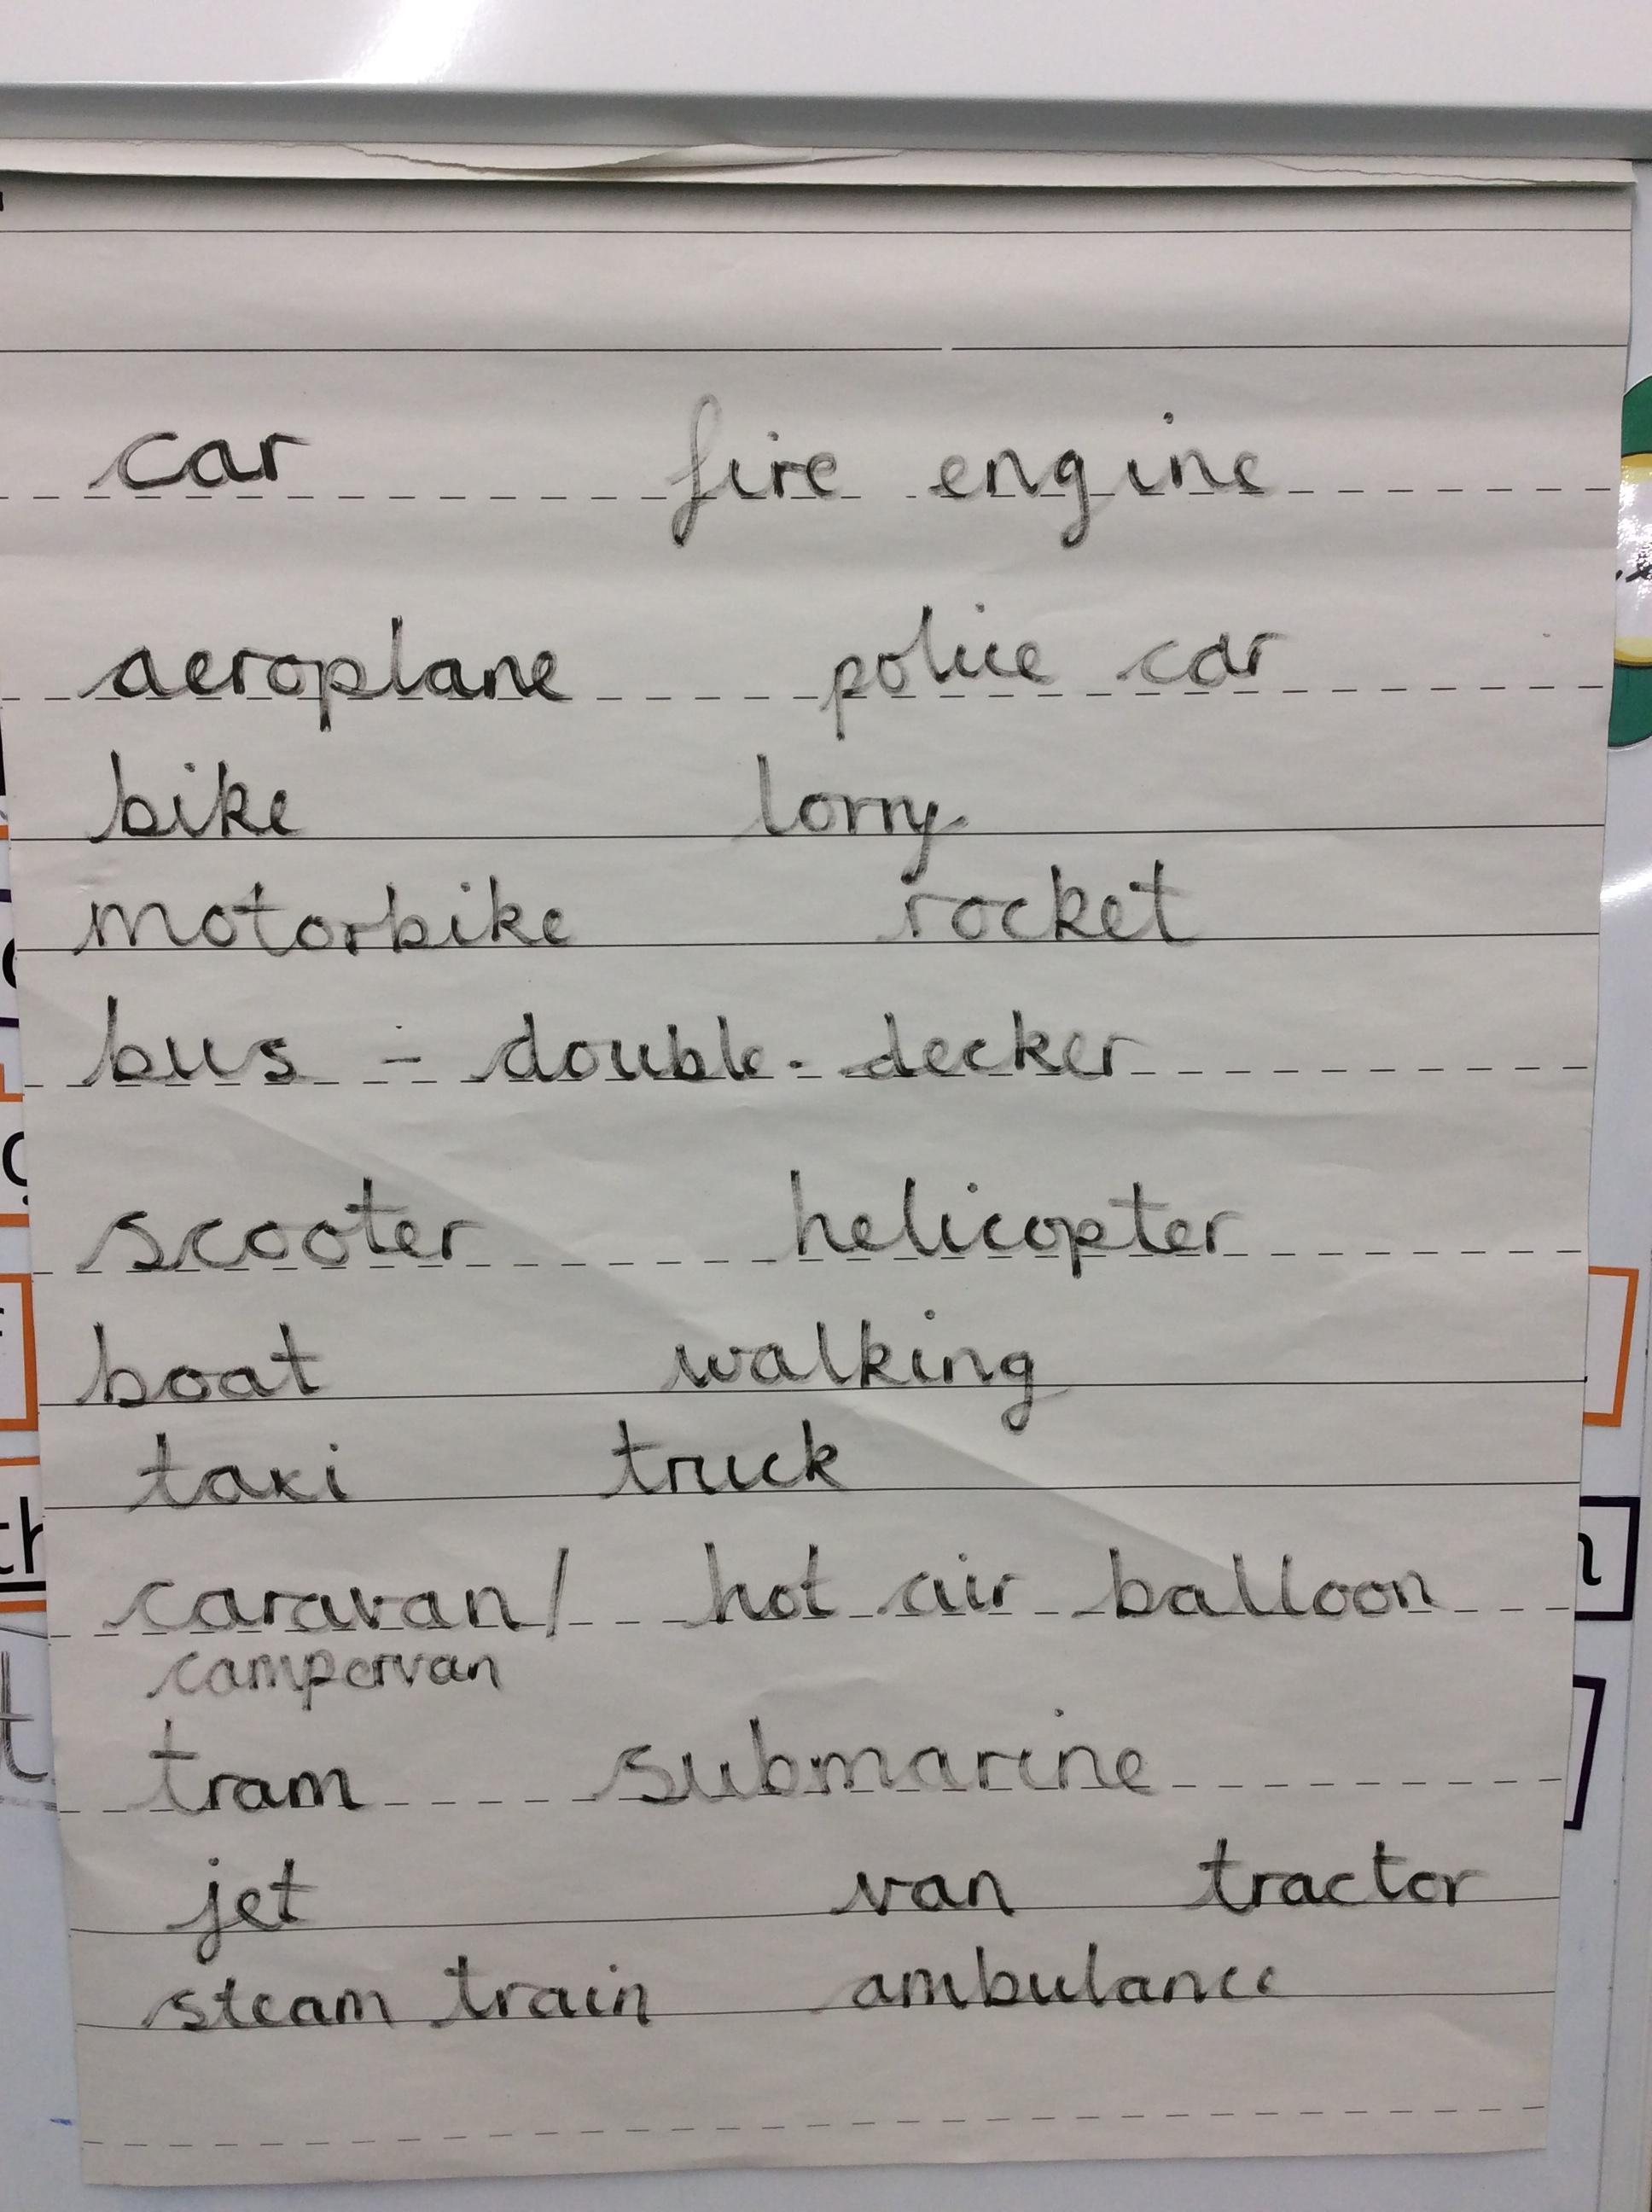 car fire engine
aeroplane police car
bike lorry
motorbike rocket
bus - double-decker
scooter helicopter
boat walking
taxi truck
caravan/ hot air balloon
campervan
tram submarine
jet van tractor
steam train ambulance